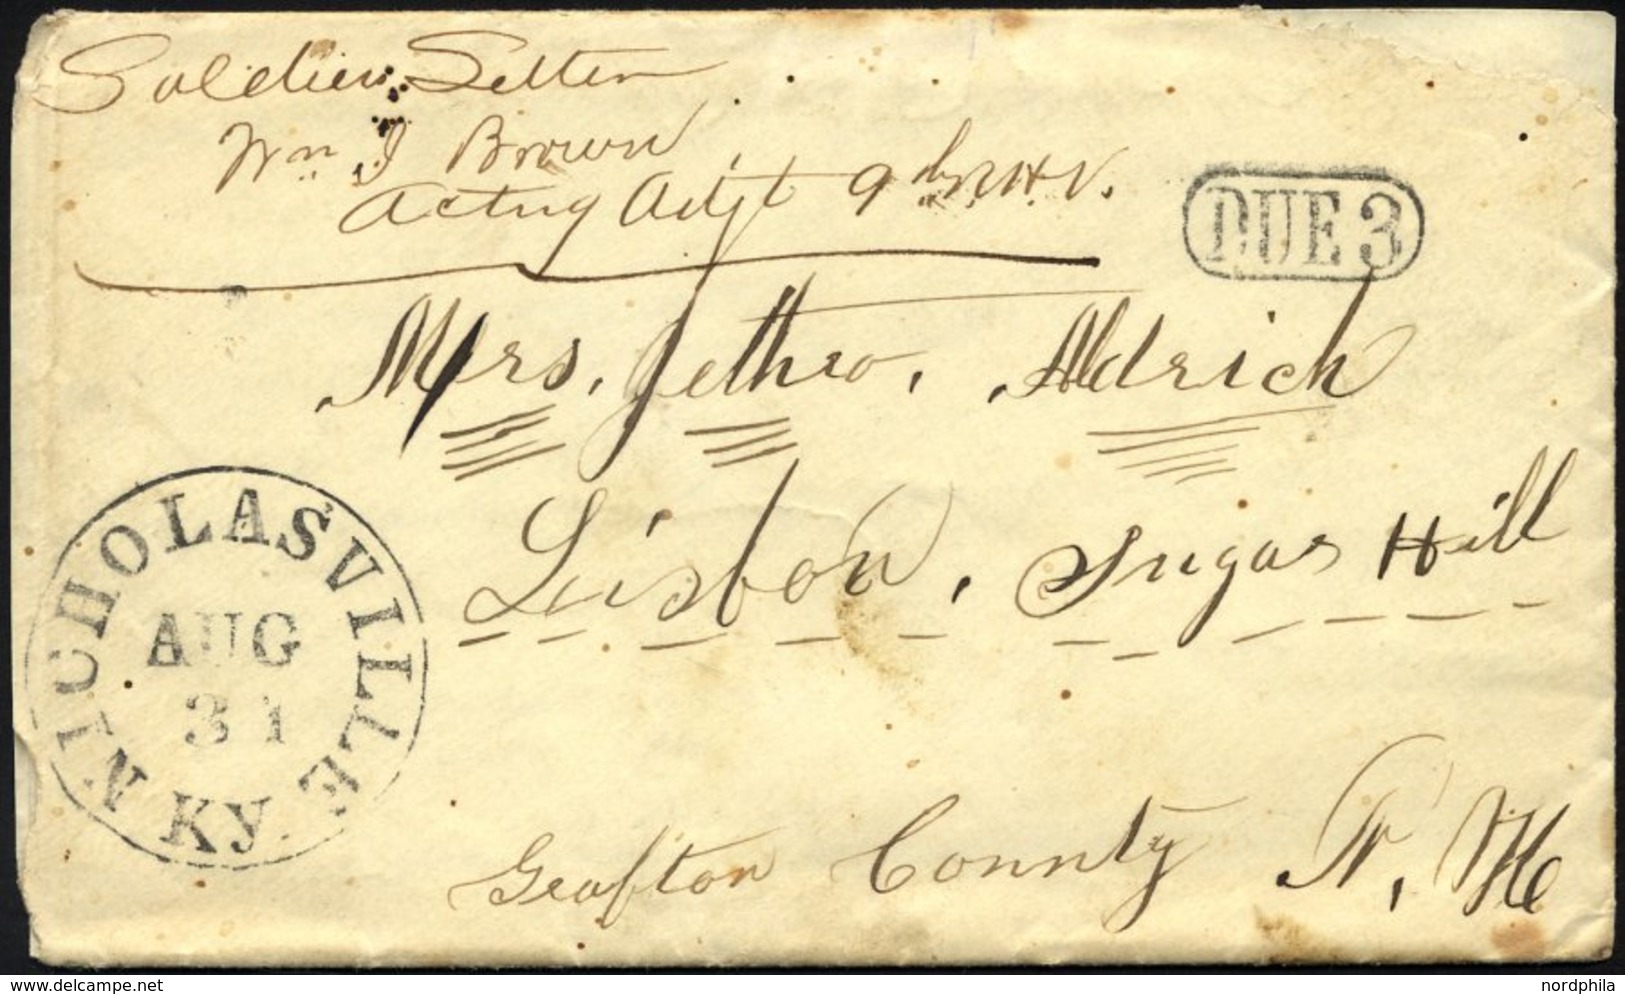 Soldiers Letter
Wm I Brown
Acting Adjt 9th N.H.V.
DUE 3
Mrs. Jethro. Aldrich
Lisbon, Sugar Hill
Grafton County N, H
NICHOLASVILLE
AUG
31
KY.
nordphila